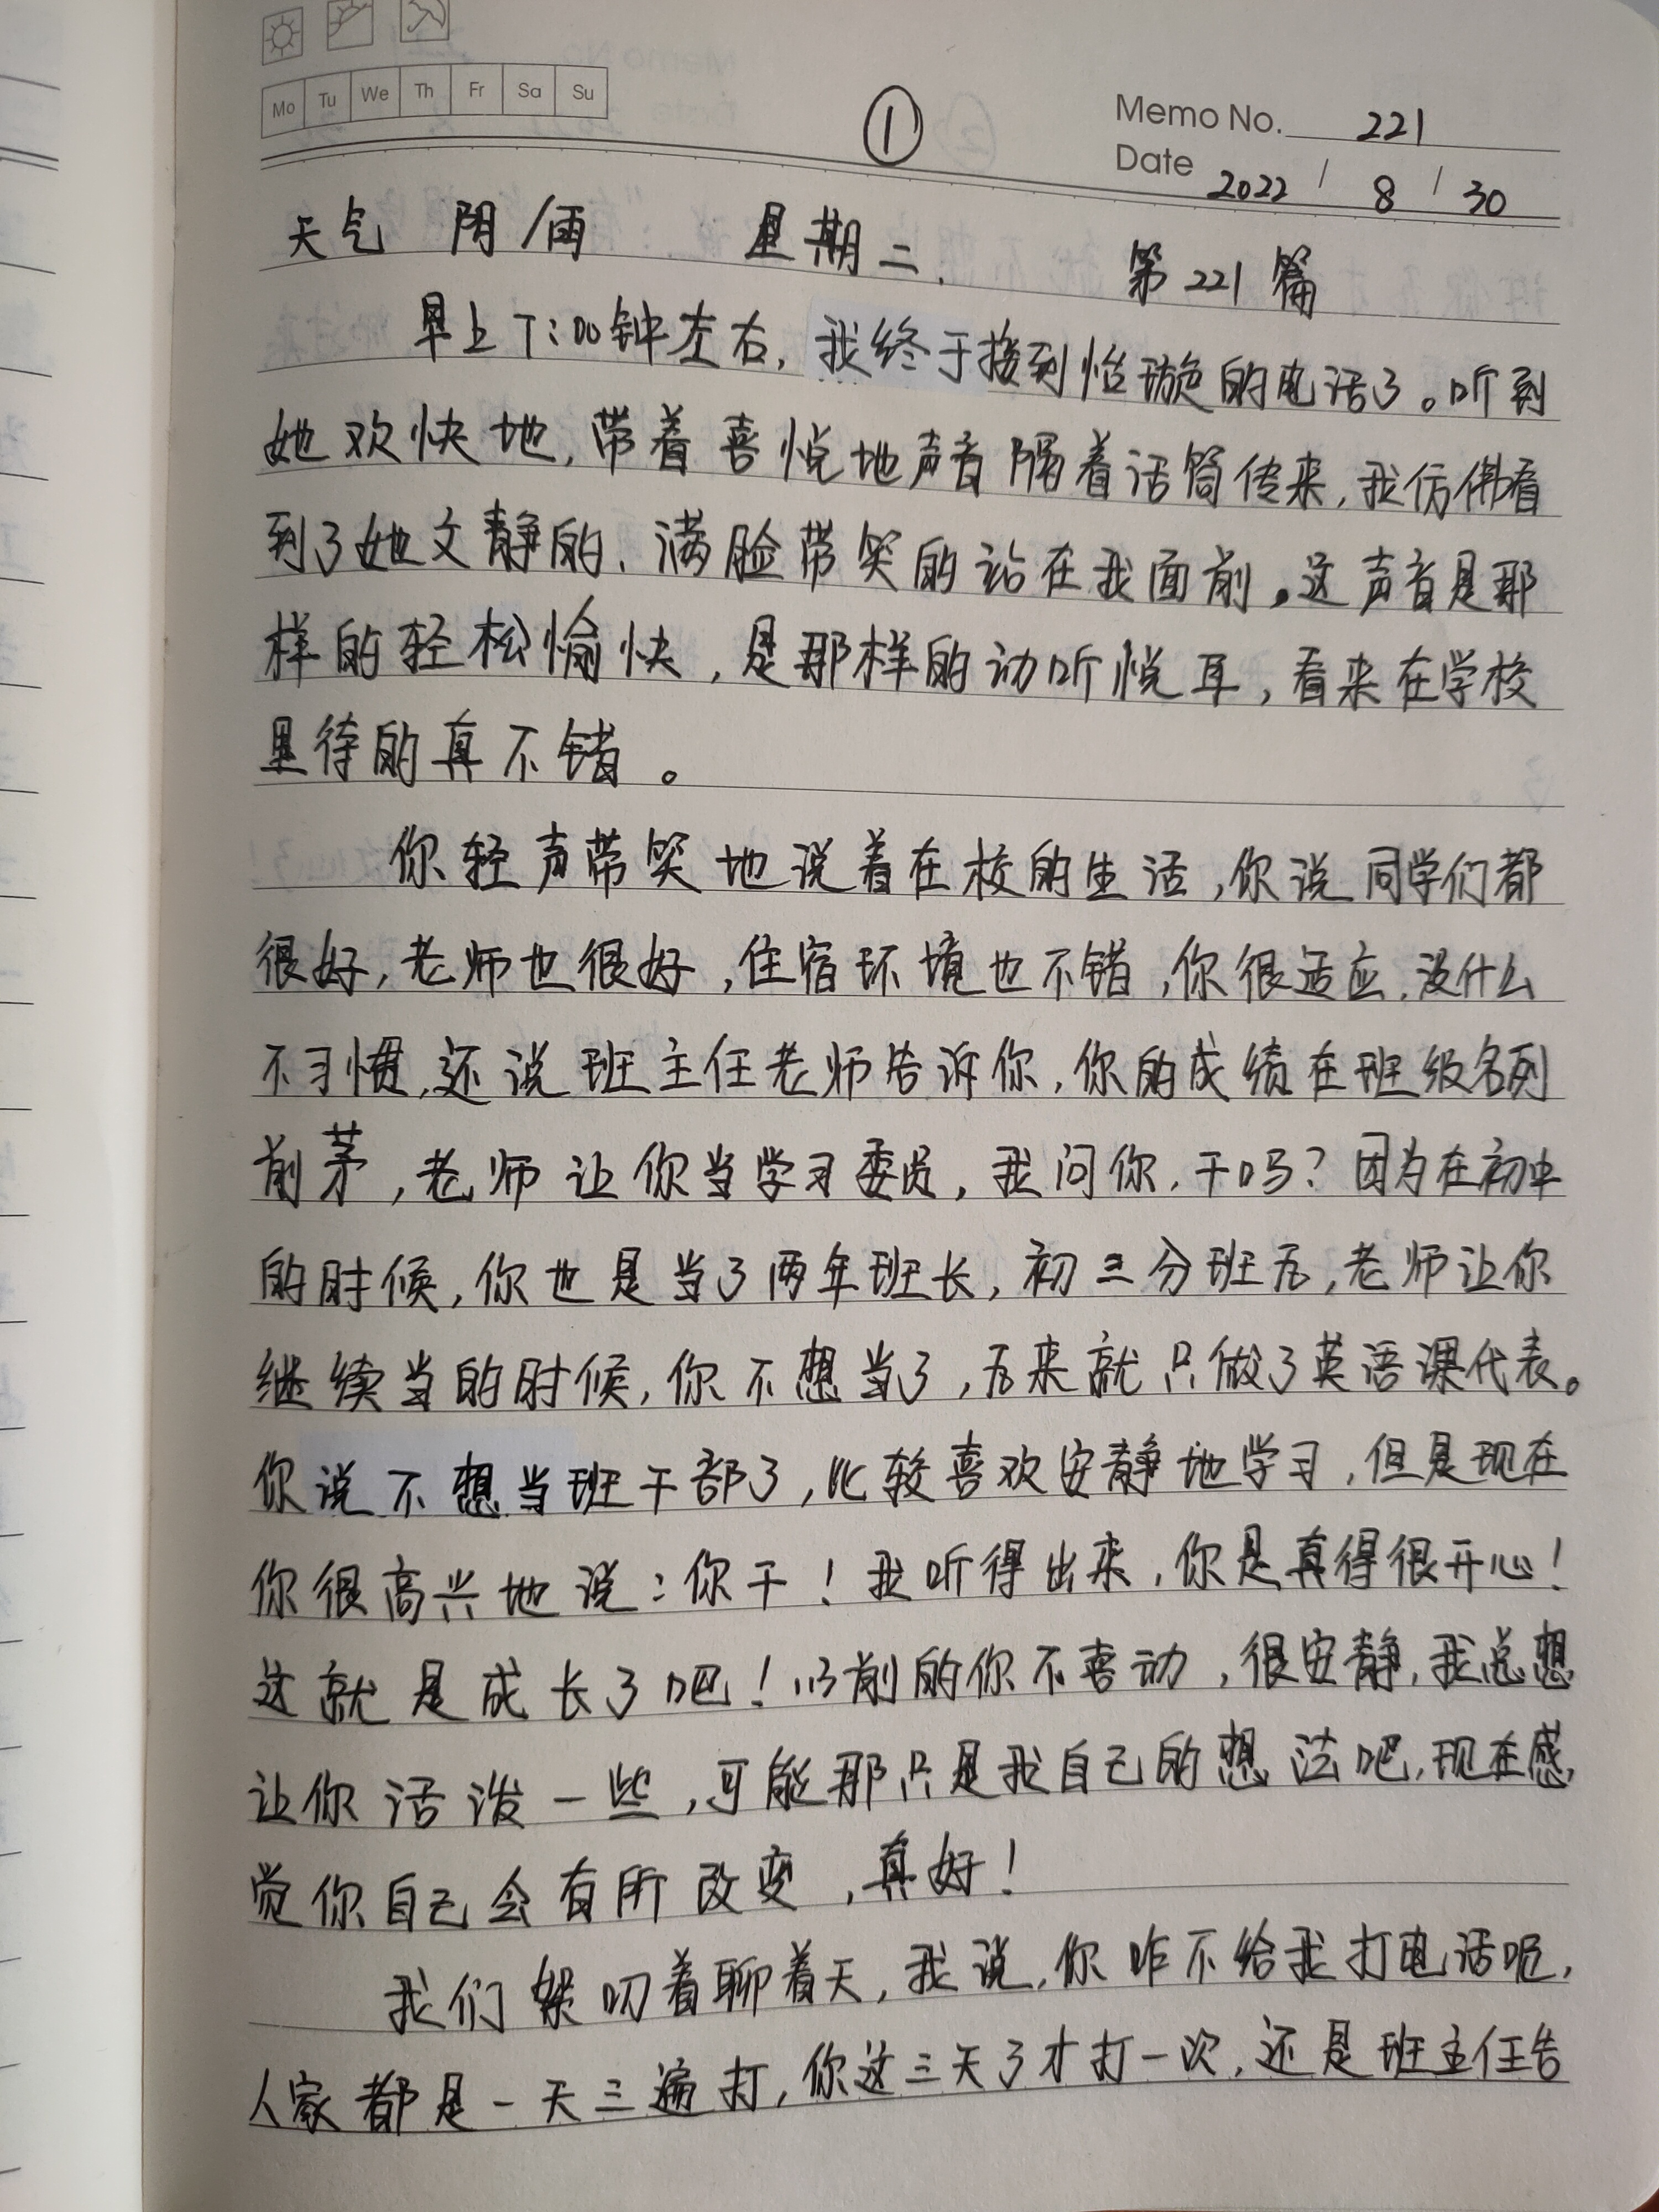 Mo Tu We Th Fr Sa Su
①
Memo No. 221
Date 2022 / 8 / 30
天气 阴/雨 星期二. 第221篇
早上7:00钟左右,我终于接到怡璇的电话了。听到
她欢快地,带着喜悦地声音隔着话筒传来,我仿佛看
到了她文静的、满脸带笑的站在我面前。这声音是那
样的轻松愉快,是那样的动听悦耳,看来在学校
里待的真不错。
你轻声带笑地说着在校的生活,你说同学们都
很好,老师也很好,住宿环境也不错,你很适应,没什么
不习惯,还说班主任老师告诉你,你的成绩在班级名列
前茅,老师让你当学习委员,我问你,干吗?因为在初中
的时候,你也是当了两年班长,初三分班后,老师让你
继续当的时候,你不想当了,后来就只做了英语课代表。
你说不想当班干部了,比较喜欢安静地学习,但是现在
你很高兴地说:你干!我听得出来,你是真得很开心!
这就是成长了吧!以前的你不喜动,很安静,我总想
让你活泼一些,可能那只是我自己的想法吧,现在感
觉你自己会有所改变,真好!
我们絮叨着聊着天,我说,你咋不给我打电话呢,
人家都是一天三遍打,你这三天了才打一次,还是班主任告